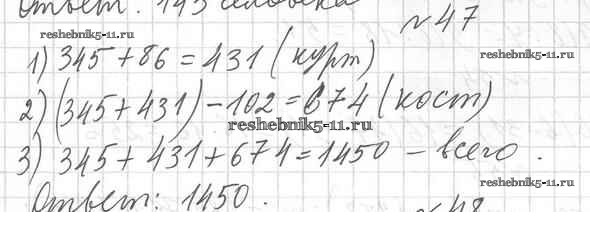 Ответ: 143 человека
№ 47
reshebnik5-11.ru
reshebnik5-11.ru
1) 345 + 86 = 431 (курт)
2) (345 + 431) - 102 = 674 (кост)
reshebnik5-11.ru
3) 345 + 431 + 674 = 1450 - всего.
reshebnik5-11.ru
Ответ: 1450.
№ 48